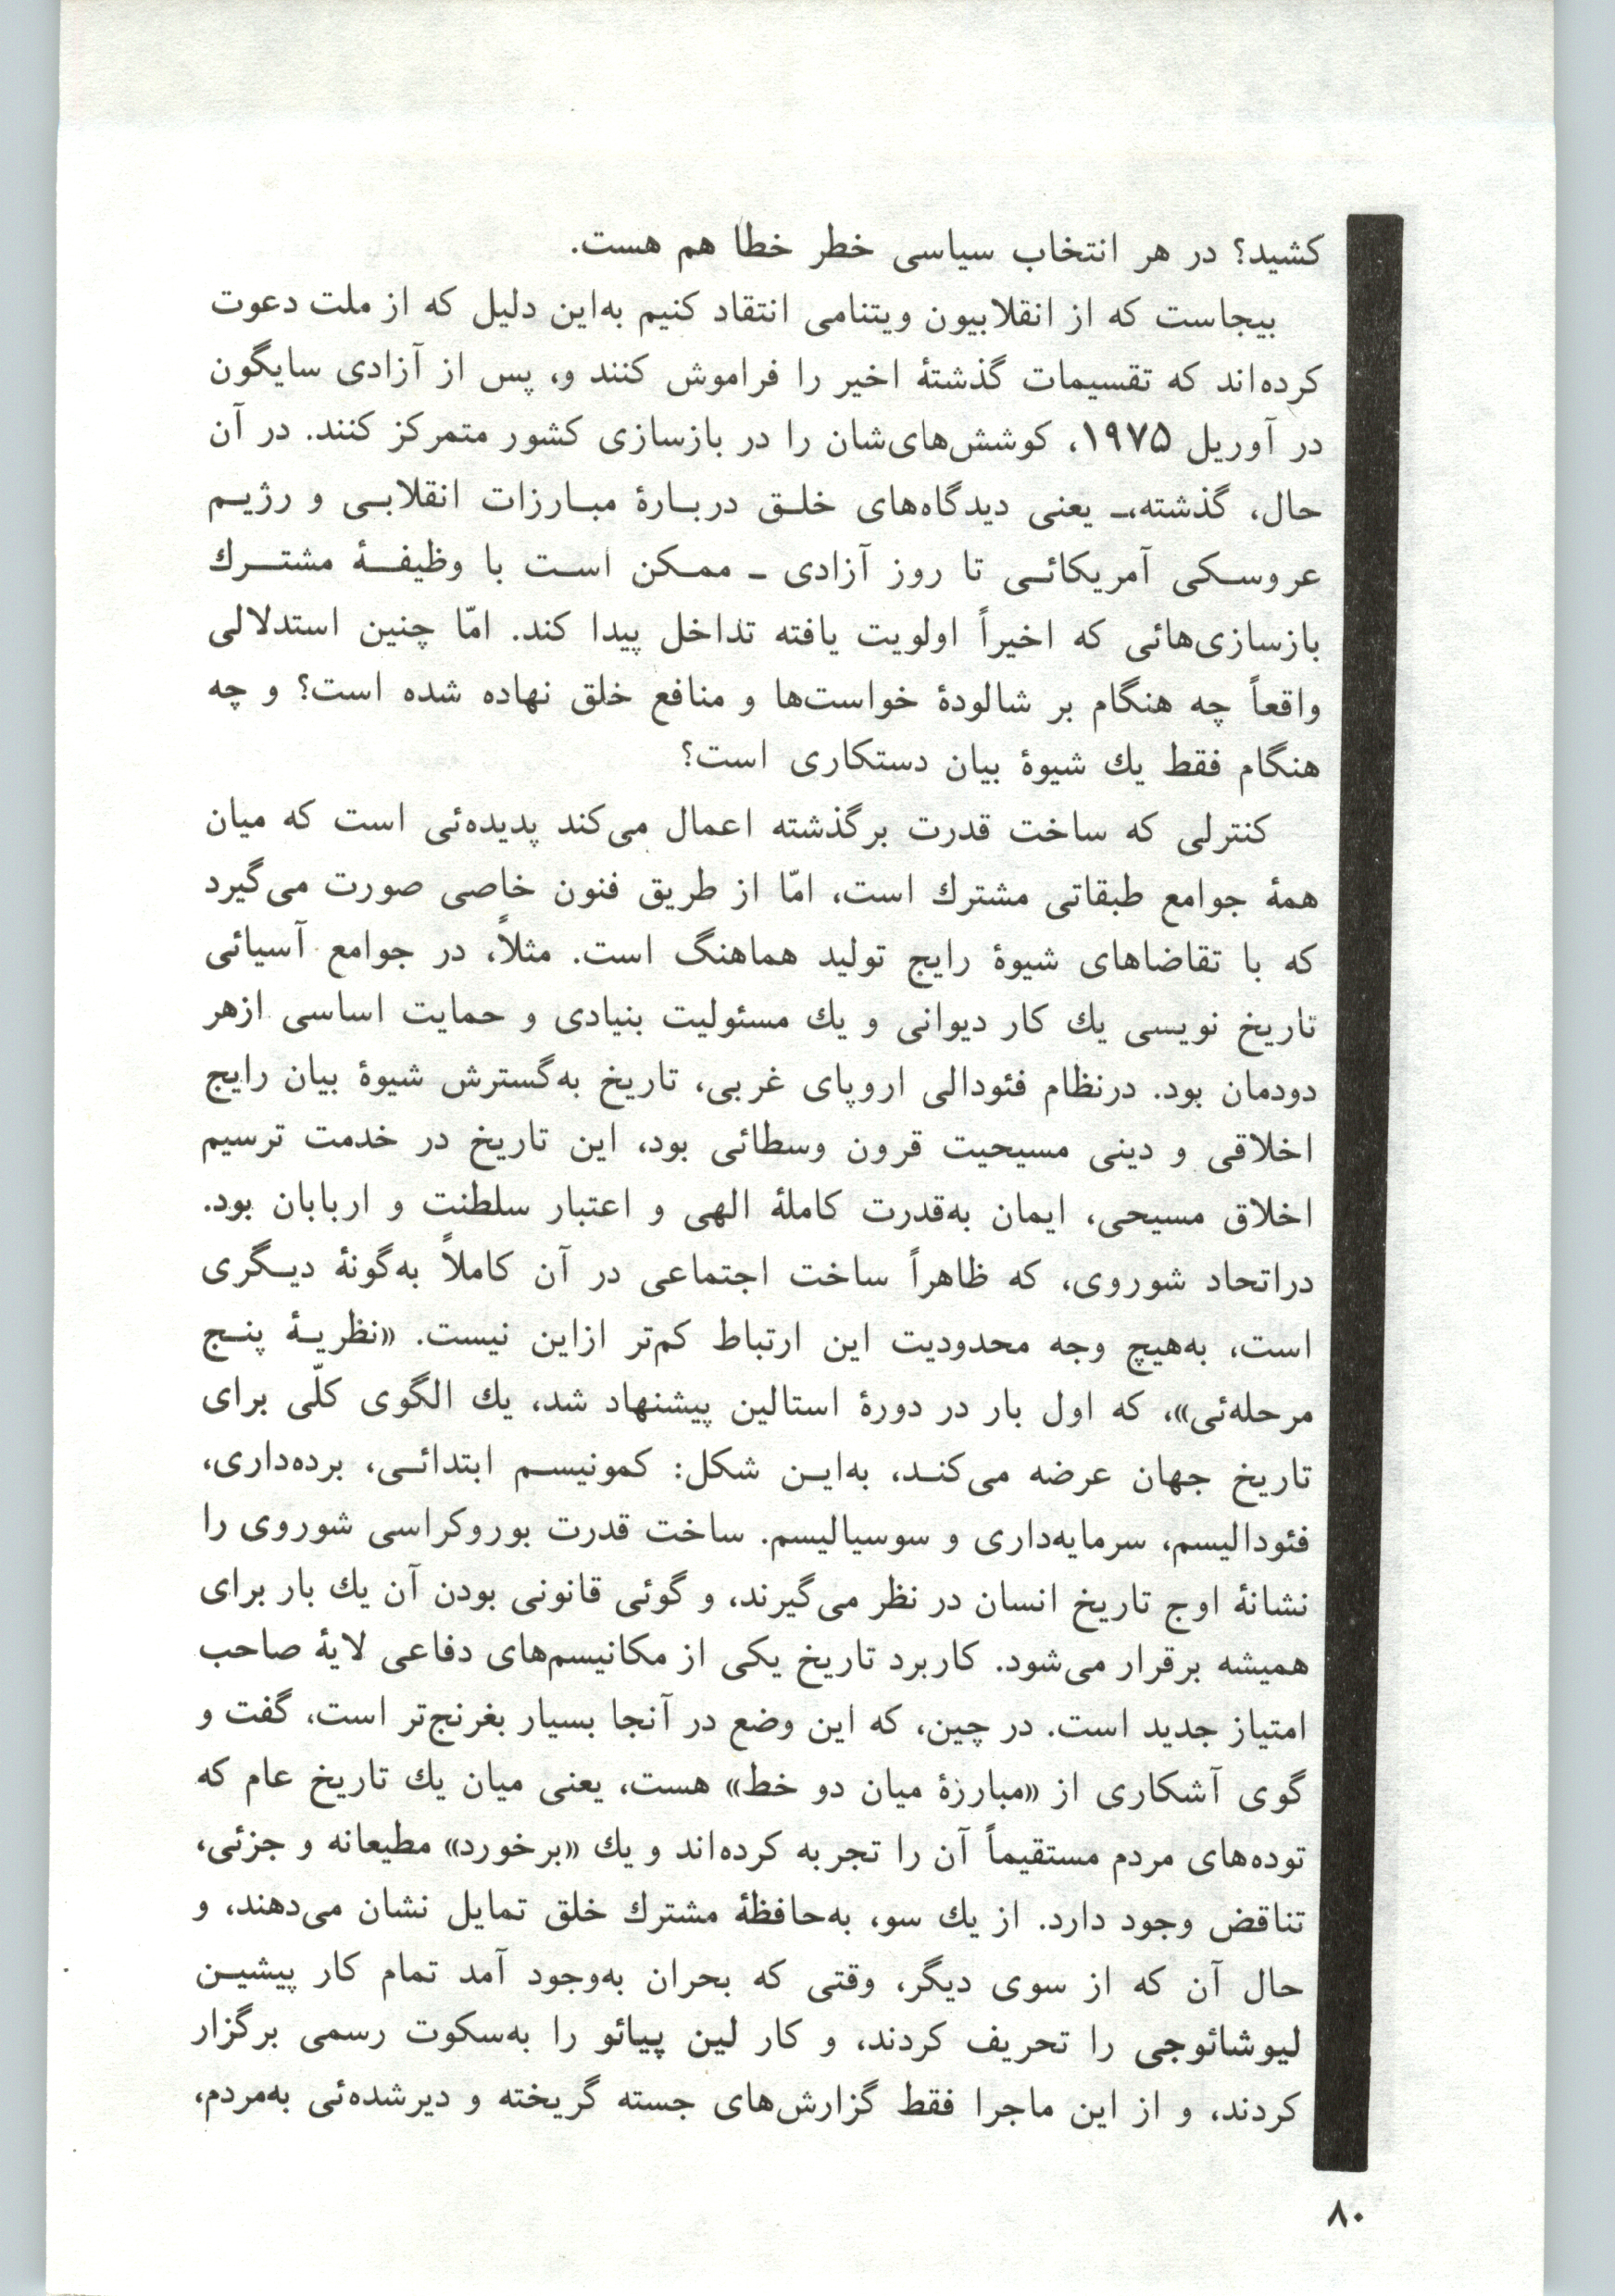 کشید؟ در هر انتخاب سیاسی خطر خطا هم هست.
بیجاست که از انقلابیون ویتنامی انتقاد کنیم به‌این دلیل که از ملت دعوت
کرده‌اند که تقسیمات گذشتهٔ اخیر را فراموش کنند و، پس از آزادی سایگون
در آوریل ۱۹۷۵، کوشش‌های‌شان را در بازسازی کشور متمرکز کنند. در آن
حال، گذشته،ـ یعنی دیدگاه‌های خلـق دربـارهٔ مبـارزات انقلابـی و رژیـم
عروسـکی آمریکائـی تا روز آزادی ـ ممـکن اسـت با وظیفـهٔ مشتـرك
بازسازی‌هائی که اخیراً اولویت یافته تداخل پیدا کند. امّا چنین استدلالی
واقعاً چه هنگام بر شالودهٔ خواست‌ها و منافع خلق نهاده شده است؟ و چه
هنگام فقط یك شیوهٔ بیان دستکاری است؟
کنترلی که ساخت قدرت برگذشته اعمال می‌کند پدیده‌ئی است که میان
همهٔ جوامع طبقاتی مشترك است، امّا از طریق فنون خاصی صورت می‌گیرد
که با تقاضاهای شیوهٔ رایج تولید هماهنگ است. مثلاً، در جوامع آسیائی
تاریخ نویسی یك کار دیوانی و یك مسئولیت بنیادی و حمایت اساسی ازهر
دودمان بود. درنظام فئودالی اروپای غربی، تاریخ به‌گسترش شیوهٔ بیان رایج
اخلاقی و دینی مسیحیت قرون وسطائی بود، این تاریخ در خدمت ترسیم
اخلاق مسیحی، ایمان به‌قدرت کاملهٔ الهی و اعتبار سلطنت و اربابان بود.
دراتحاد شوروی، که ظاهراً ساخت اجتماعی در آن کاملاً به‌گونهٔ دیـگری
است، به‌هیچ وجه محدودیت این ارتباط کم‌تر ازاین نیست. «نظریـهٔ پنـج
مرحله‌ئی»، که اول بار در دورهٔ استالین پیشنهاد شد، یك الگوی کلّی برای
تاریخ جهان عرضه می‌کنـد، به‌ایـن شکل: کمونیسـم ابتدائـی، برده‌داری،
فئودالیسم، سرمایه‌داری و سوسیالیسم. ساخت قدرت بوروکراسی شوروی را
نشانهٔ اوج تاریخ انسان در نظر می‌گیرند، و گوئی قانونی بودن آن یك بار برای
همیشه برقرار می‌شود. کاربرد تاریخ یکی از مکانیسم‌های دفاعی لایهٔ صاحب
امتیاز جدید است. در چین، که این وضع در آنجا بسیار بغرنج‌تر است، گفت و
گوی آشکاری از «مبارزهٔ میان دو خط» هست، یعنی میان یك تاریخ عام که
توده‌های مردم مستقیماً آن را تجربه کرده‌اند و یك «برخورد» مطیعانه و جزئی،
تناقض وجود دارد. از یك سو، به‌حافظهٔ مشترك خلق تمایل نشان می‌دهند، و
حال آن که از سوی دیگر، وقتی که بحران به‌وجود آمد تمام کار پیشیـن
لیوشائوجی را تحریف کردند، و کار لین پیائو را به‌سکوت رسمی برگزار
کردند، و از این ماجرا فقط گزارش‌های جسته گریخته و دیرشده‌ئی به‌مردم،
۸۰